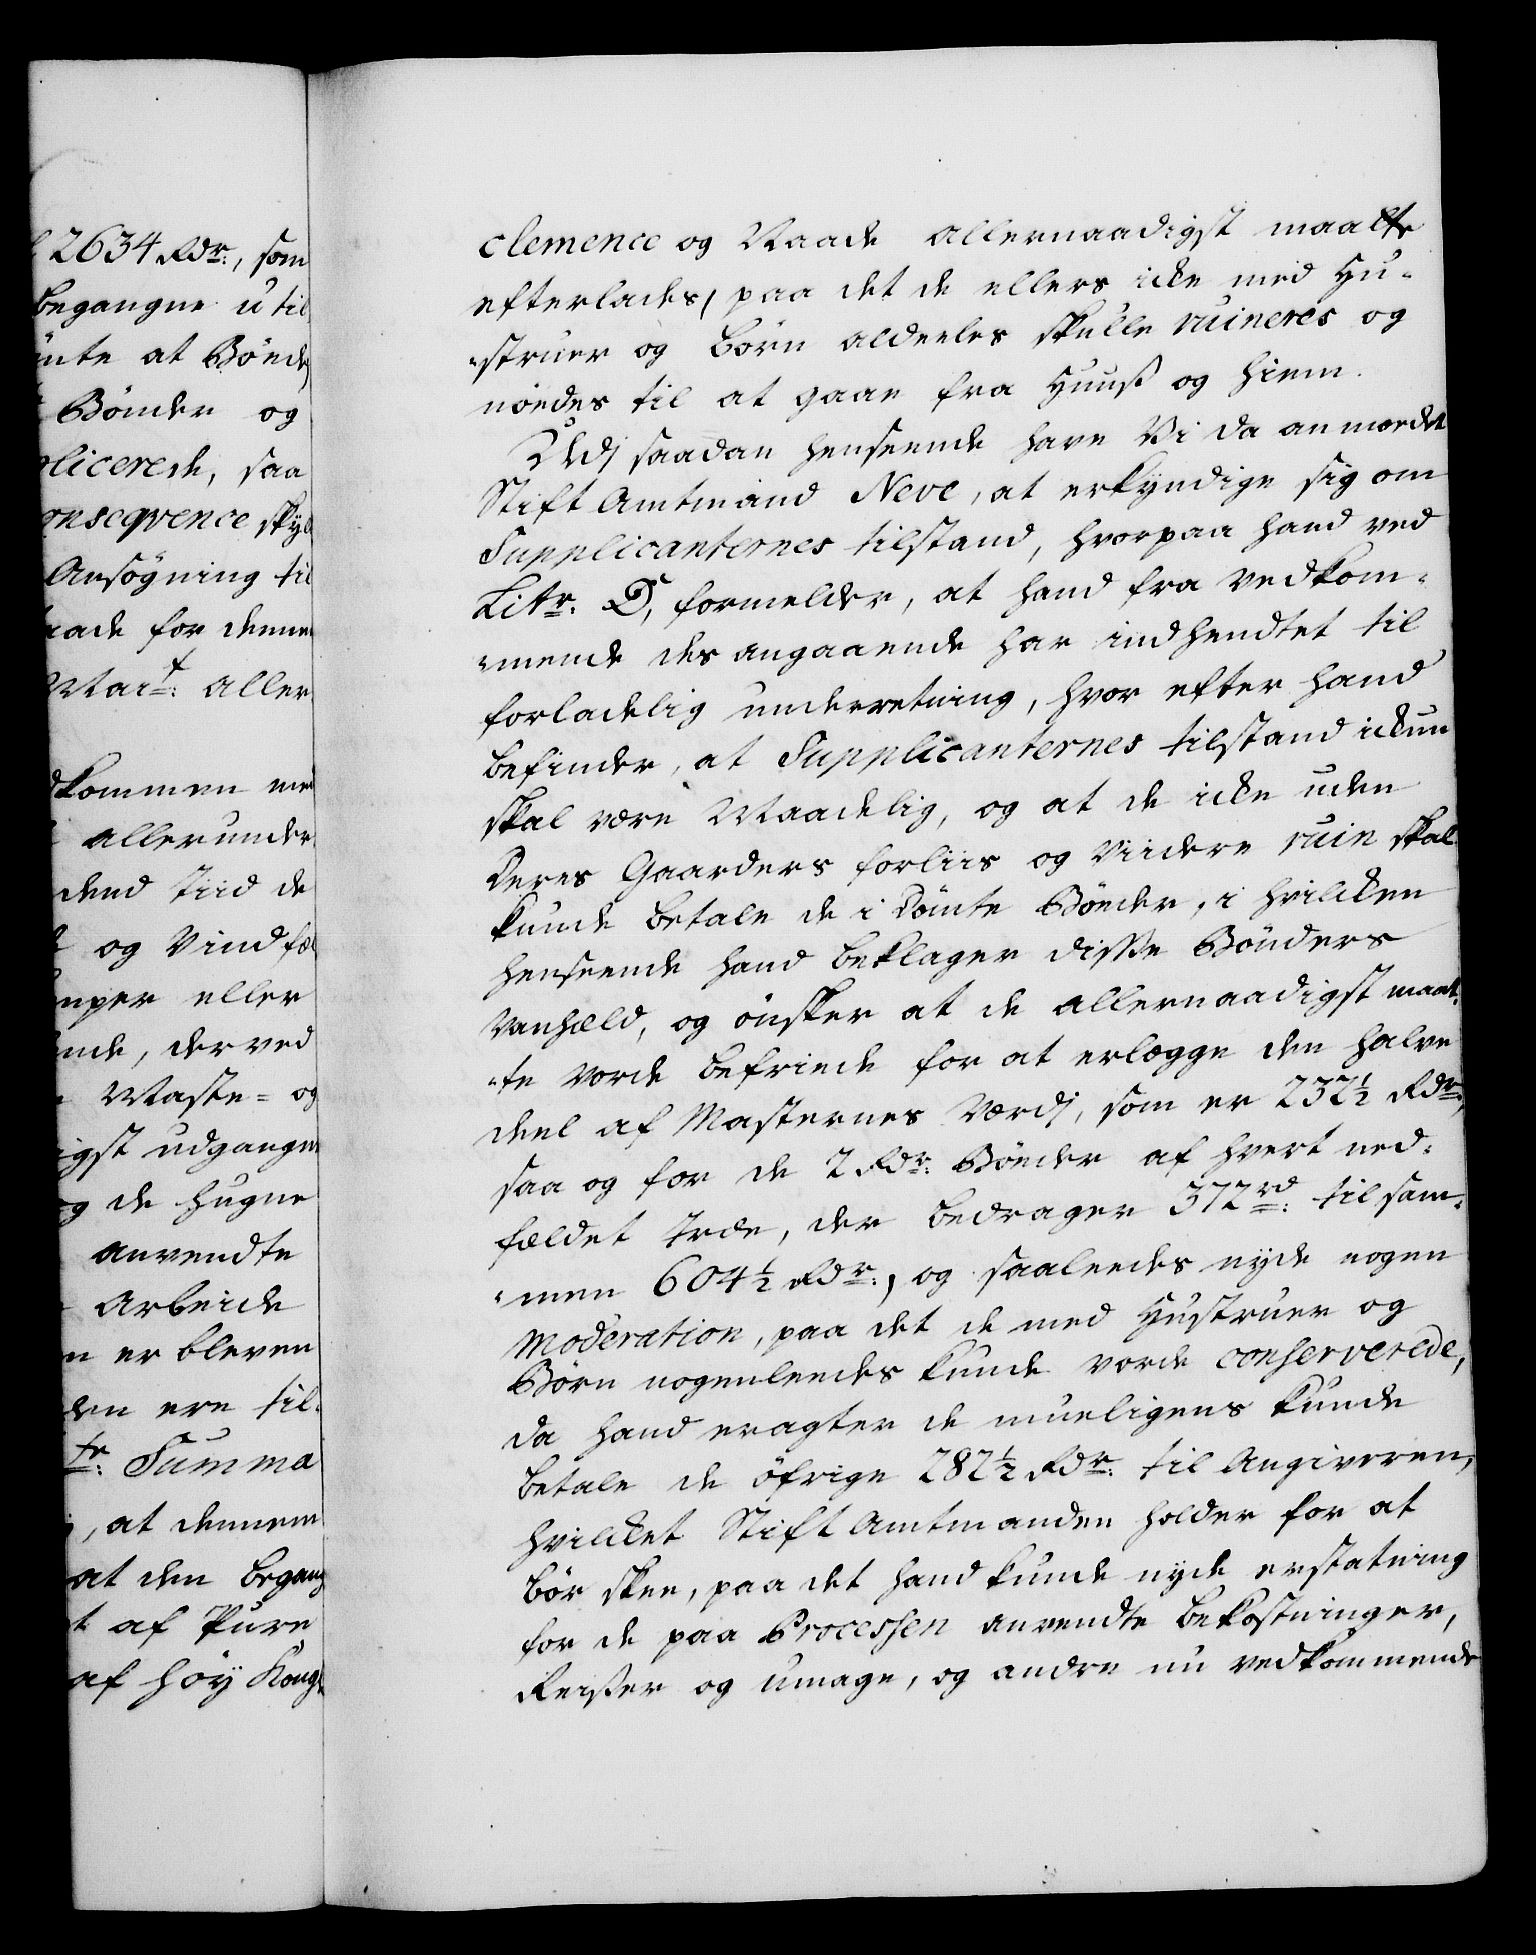 2634 Rdr:, som
begangne u til
at Bönder
Bönder og
plicerede, saa
onseqvence skyl
Ansögning til
naade for denne
May:t aller
kommen med
allerunder
dend Tiid de
og Vindfæl
eller
derved
Maste- og
igst udgangne
og de hugne
anvendte
Arbeide
er bleven
ere til-
Summa
, at dennem
at den begang
af Pure
af höy Kongl
clemence og Naade allernaadigst maatte
efterlades, paa det de ellers icke med Hu-
struer og Börn aldeeles skulle ruineres og
nöedes til at gaae fra Huuss og Hiem.
Udj saadan henseende have Vi da anmodet
Stift Amtmand Neve, at erkyndige sig om
Supplicanternes tilstand, hvorpaa hand ved
Litr: D, formelder, at hand fra vedkom-
mende des angaaende har indhendtet til
forladelig underretning, hvor efter hand
befinder, at Supplicanternes tilstand ickun
skal være Maadelig, og at de icke uden
Deres Gaarders forliis og Viidere ruin skal
kunde betale de i dömte Böeder, i hvilcken
henseende hand beklager disse Bönders
Vanheld, og önsker at de allernaadigst maat-
te vorde befriede for at erlægge den halve
deel af Masternes Værdj, som er 232½ Rdr:,
saa og for de 2 Rdr: Böeder af hvert ned-
fældet Træe, der bedrager 372 rd: tilsam-
men 604½ Rdr:, og saaleedes nyde nogen
Moderation, paa det de med Hustruer og
Börn nogenleedes kunde vorde conserverede,
da hand eragter de mueligens kunde
betale de öfrige 282½ Rdr: til Angiveren,
hvilcket Stift Amtmanden holder for at
bör skee, paa det hand kunde nyde erstatning
for de paa Processen anvendte bekostninger,
Reisser og umage, og andre nu vedkommende